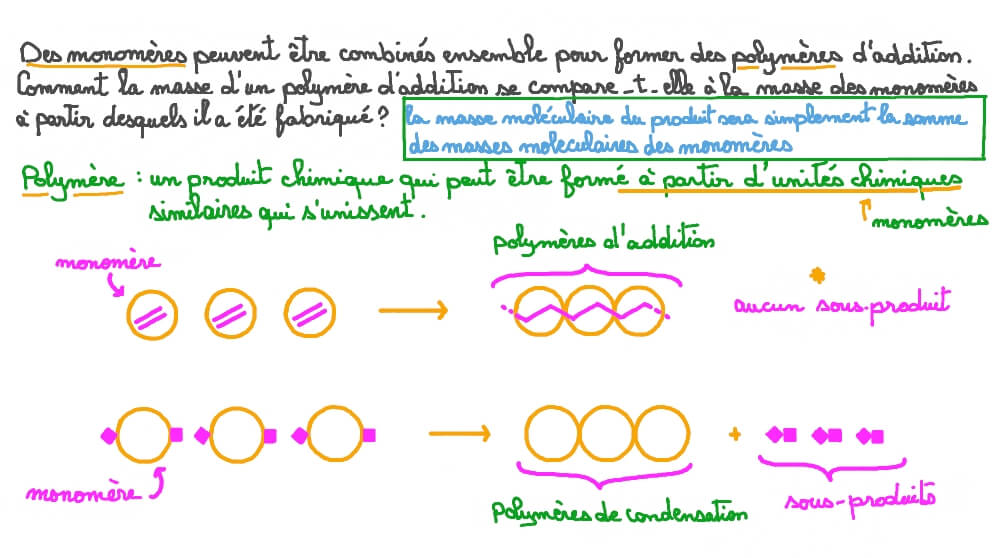 Des monomères peuvent être combinés ensemble pour former des polymères d'addition.
Comment la masse d'un polymère d'addition se compare-t-elle à la masse des monomères
à partir desquels il a été fabriqué ? la masse moléculaire du produit sera simplement la somme
des masses moleculaires des monomères
Polymère : un produit chimique qui peut être formé à partir d'unités chimiques
similaires qui s'unissent.
monomères
polymères d'addition
monomère
*
aucun sous-produit
+
monomère
sous-produits
Polymères de condensation